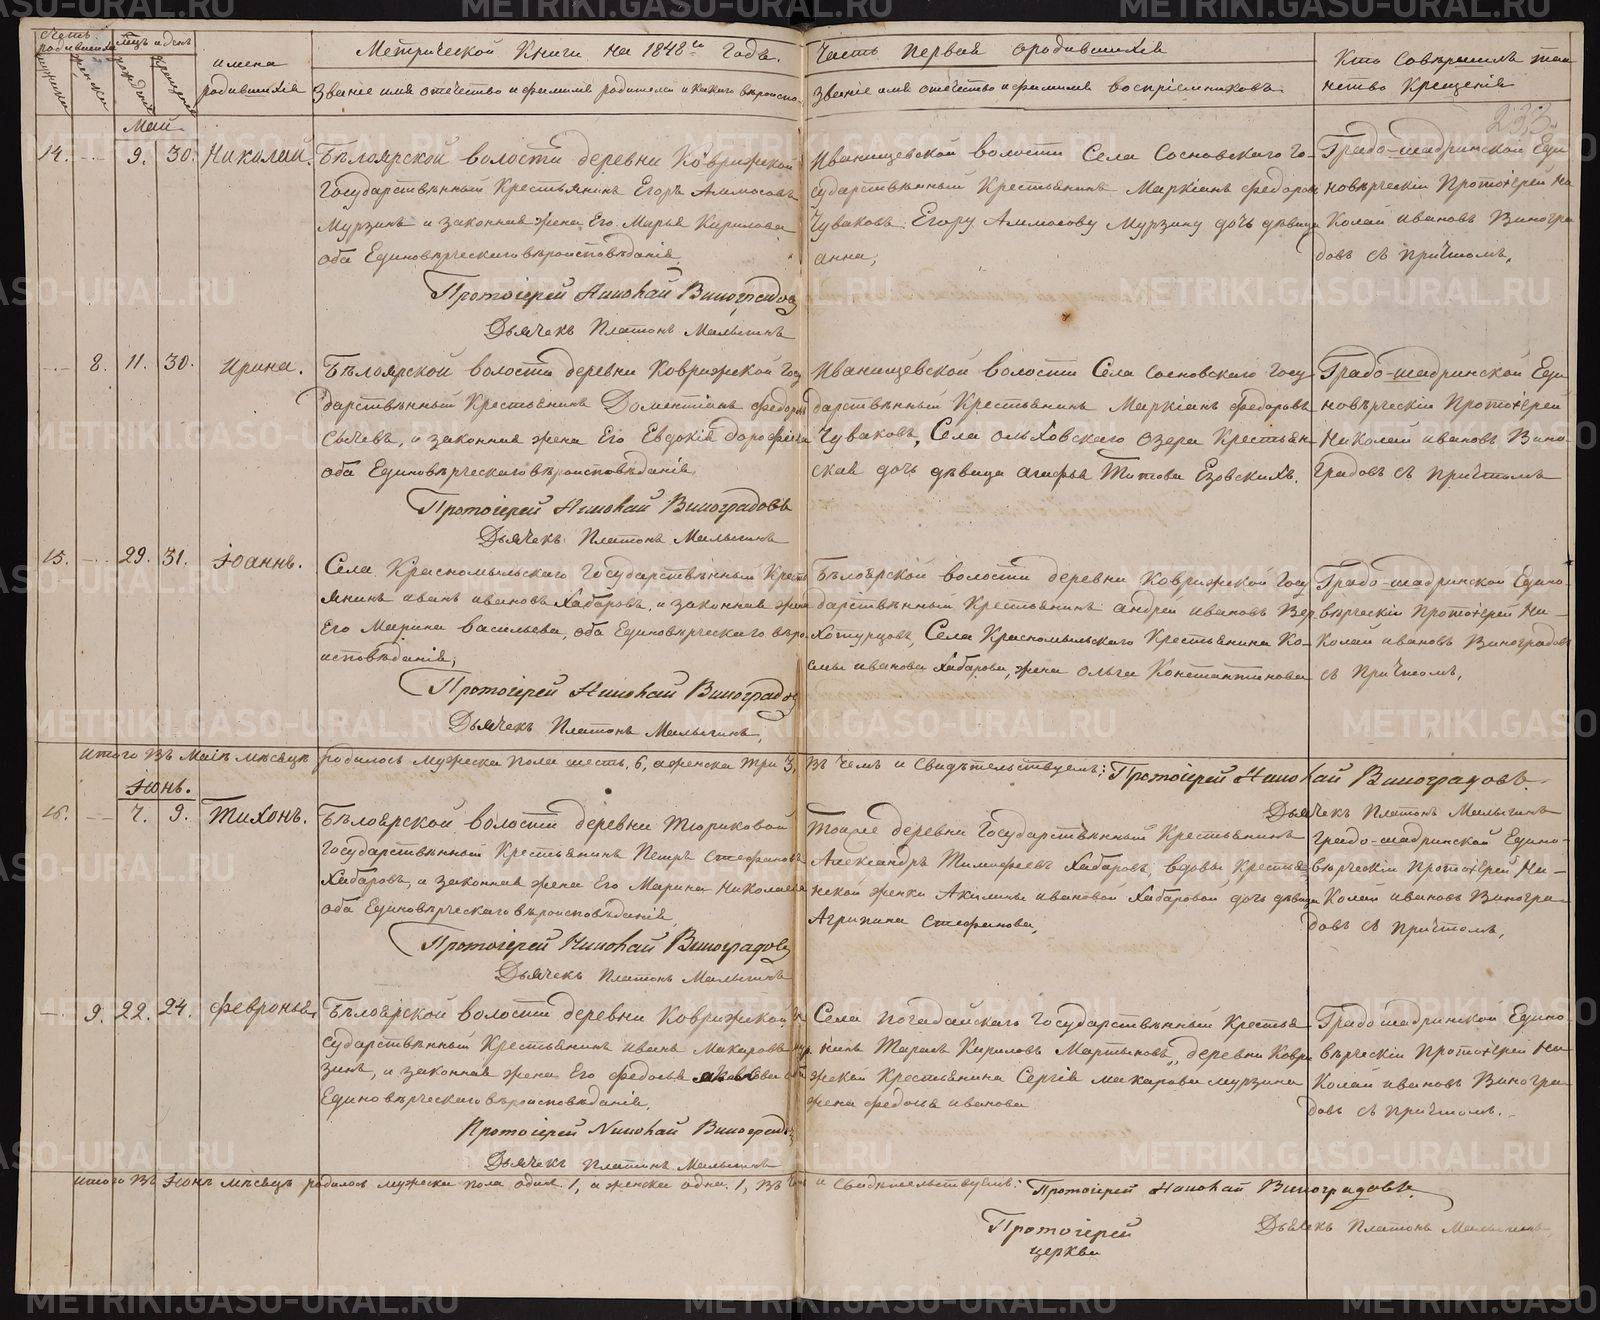 Счетъ родившихся
Мужеска
Женска
Мцъ и день
рожденія
крещенія
имена
родившихся
Метрической Книги на 1848й Годъ.
Званіе имя отечество и фамилія родителей и какого вѣроиспо-
Часть первая о родившихся
Званіе имя отечество и фамилія воспріемниковъ
Кто совершилъ таи
нство Крещенія
233
Май
14. — 9. 30. Николай.
Бѣлоярской волости деревни Коврижской
Государственный Крестьянинъ Егоръ Аммосовъ
Мурзинъ и законная жена Его Марья Кирилова
оба Единовѣрческаго вѣроисповѣданія,
Протоіерей Николай Виноградовъ
Дьячекъ Платонъ Малыгинъ
Иванищевской волости Села Сосновскаго Го-
сударственный Крестьянинъ Маркіанъ Федоровъ
Чуваковъ. Егору Аммосову Мурзину дочь дѣвица
анна,
Градо-шадринской Еди
новѣрческій Протоіерей Ни
колай ивановъ Виногра
довъ съ причтомъ,
— 8. 11. 30. Ирина.
Бѣлоярской волости деревни Коврижской Госу
дарственный Крестьянинъ Доментіанъ Федоровъ
Сычевъ, и законная жена Его Евдокія дорофѣева
оба Единовѣрческаго вѣроисповѣданія,
Протоіерей Николай Виноградовъ
Дьячекъ Платонъ Малыгинъ
Иванищевской волости Села Сосновскаго Госу
дарственный Крестьянинъ Маркіанъ Федоровъ
Чуваковъ, Села ольховскаго озера Крестьян
ская дочь дѣвица агафья Титова Езовскихъ.
Градо-шадринской Еди
новѣрческій Протоіерей
Николай ивановъ Вино-
градовъ съ причтомъ
15. — 29. 31. Іоаннъ.
Села Красномыльскаго Государственный Кресть
янинъ иванъ ивановъ Хабаровъ, и законная жена
Его Марина васильева, оба Единовѣрческаго вѣро
исповѣданія;
Протоіерей Николай Виноградовъ
Дьячекъ Платонъ Малыгинъ,
Бѣлоярской волости деревни Коврижской Госу
дарственный Крестьянинъ андрей ивановъ Вер
хотурцовъ, Села Красномыльскаго Крестьянина Ко-
смы иванова Хабарова, жена ольга Константинова
Градо-шадринской Едино-
вѣрческій протоіерей Ни-
колай ивановъ Виноградовъ
съ Причтомъ,
итого въ Маіѣ мѣсяцѣ родилось мужеска пола шесть. 6, а женска три 3, въ чемъ и Свидѣтельствуемъ: Протоіерей Николай Виноградовъ.
Дьячекъ Платонъ Малыгинъ
Іюнь.
16. — 7. 9. Тихонъ.
Бѣлоярской волости деревни Тюриковой
Государственный Крестьянинъ Петръ стефановъ
Хабаровъ, и законная жена Его Марина Николаева
оба Единовѣрческаго вѣроисповѣданія,
Протоіерей Николай Виноградовъ
Дьячекъ Платонъ Малыгинъ
Тояже деревни Государственный Крестьянинъ
Александръ Тимофеевъ Хабаровъ, вдовы Крестья
нской женки Акилины ивановой Хабаровой дочь дѣвица
Агрипина Стефанова,
Градо-шадринской Едино-
вѣрческій протоіерей Ни-
колай ивановъ Виногра-
довъ съ причтомъ,
— 9. 22. 24. Февронья,
Бѣлоярской волости деревни Коврижской Го
сударственный Крестьянинъ иванъ Макаровъ мур
зинъ, и законная жена Его Федосья
Единовѣрческаго вѣроисповѣданія.
Протоіерей Николай Виноградовъ
Дьячекъ Платонъ Малыгинъ
Села Погадайскаго Государственный Крестья
нинъ Тарасъ Кириловъ Мартыновъ, деревни Коври
жской Крестьянина Сергія макарова мурзина
жена федосья иванова
Градо шадринской Едино-
вѣрческій протоіерей Ни
колай ивановъ Виногра-
довъ съ причтомъ.
итого въ Іюнѣ мѣсяцѣ родилось мужеска пола одинъ 1, а женска одна. 1, въ чемъ и Свидѣтельствуемъ: Протоіерей Николай Виноградовъ.
Дьячекъ Платонъ Малыгинъ
Протоіерей
церкви